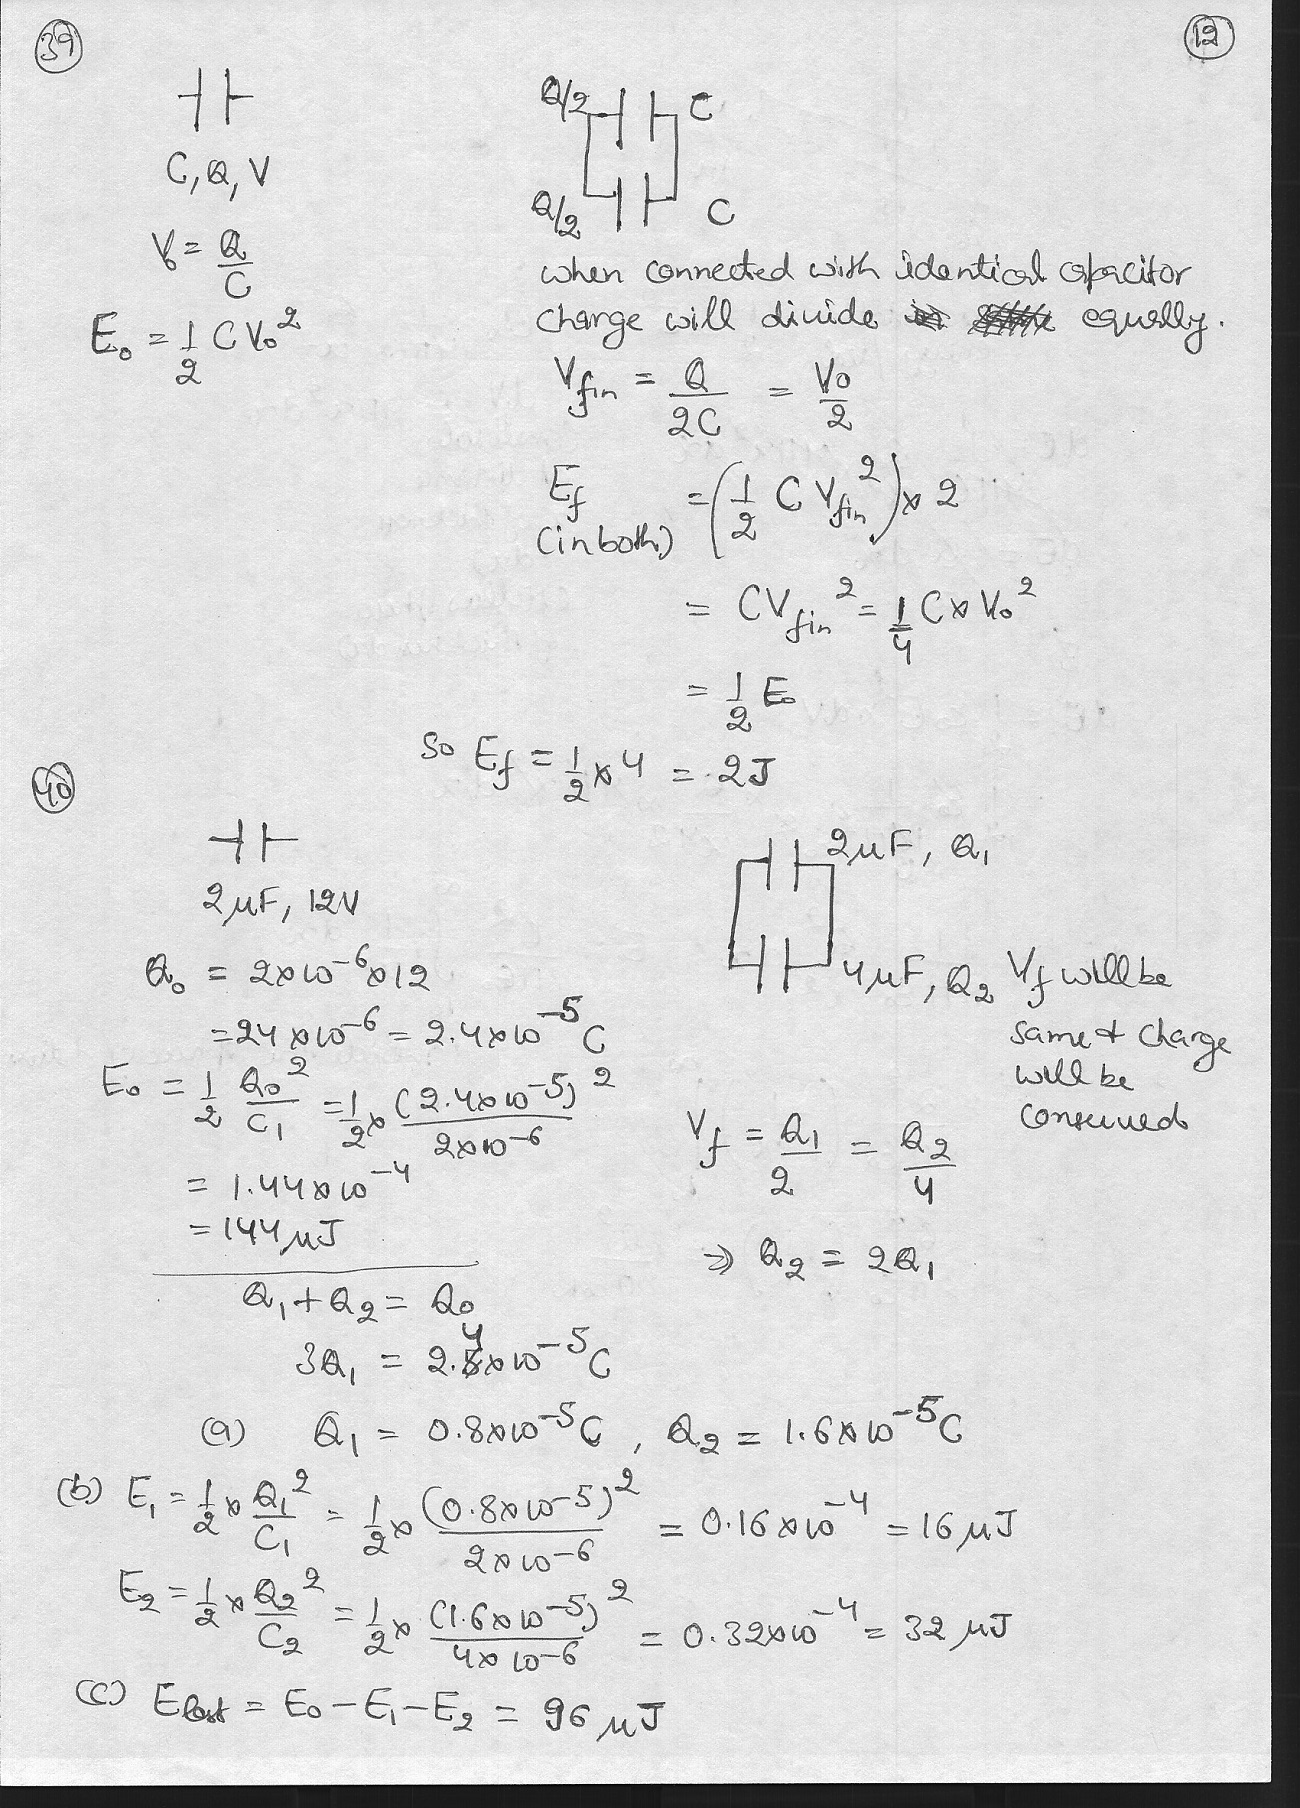 39
12
C, Q, V
V₀ = Q/C
E₀ = 1/2 CV₀²
Q/2 C
Q/2 C
when connected with identical capacitor
charge will divide equally.
V_fin = Q/2C = V₀/2
E_f (in both) = (1/2 C V_fin²) × 2
= CV_fin² = 1/4 C × V₀²
= 1/2 E₀
So E_f = 1/2 × 4 = 2J
40
2μF, 12V
Q₀ = 2×10⁻⁶×12
= 24×10⁻⁶ = 2.4×10⁻⁵ C
E₀ = 1/2 Q₀²/C₁ = 1/2 × (2.4×10⁻⁵)²/2×10⁻⁶
= 1.44×10⁻⁴
= 144 μJ
2μF, Q₁
4μF, Q₂ V_f will be
same & charge
will be
conserved
V_f = Q₁/2 = Q₂/4
⇒ Q₂ = 2Q₁
Q₁ + Q₂ = Q₀
3Q₁ = 2.4×10⁻⁵ C
(a) Q₁ = 0.8×10⁻⁵ C, Q₂ = 1.6×10⁻⁵ C
(b) E₁ = 1/2 × Q₁²/C₁ = 1/2 × (0.8×10⁻⁵)²/2×10⁻⁶ = 0.16×10⁻⁴ = 16 μJ
E₂ = 1/2 × Q₂²/C₂ = 1/2 × (1.6×10⁻⁵)²/4×10⁻⁶ = 0.32×10⁻⁴ = 32 μJ
(c) E_lost = E₀ − E₁ − E₂ = 96 μJ